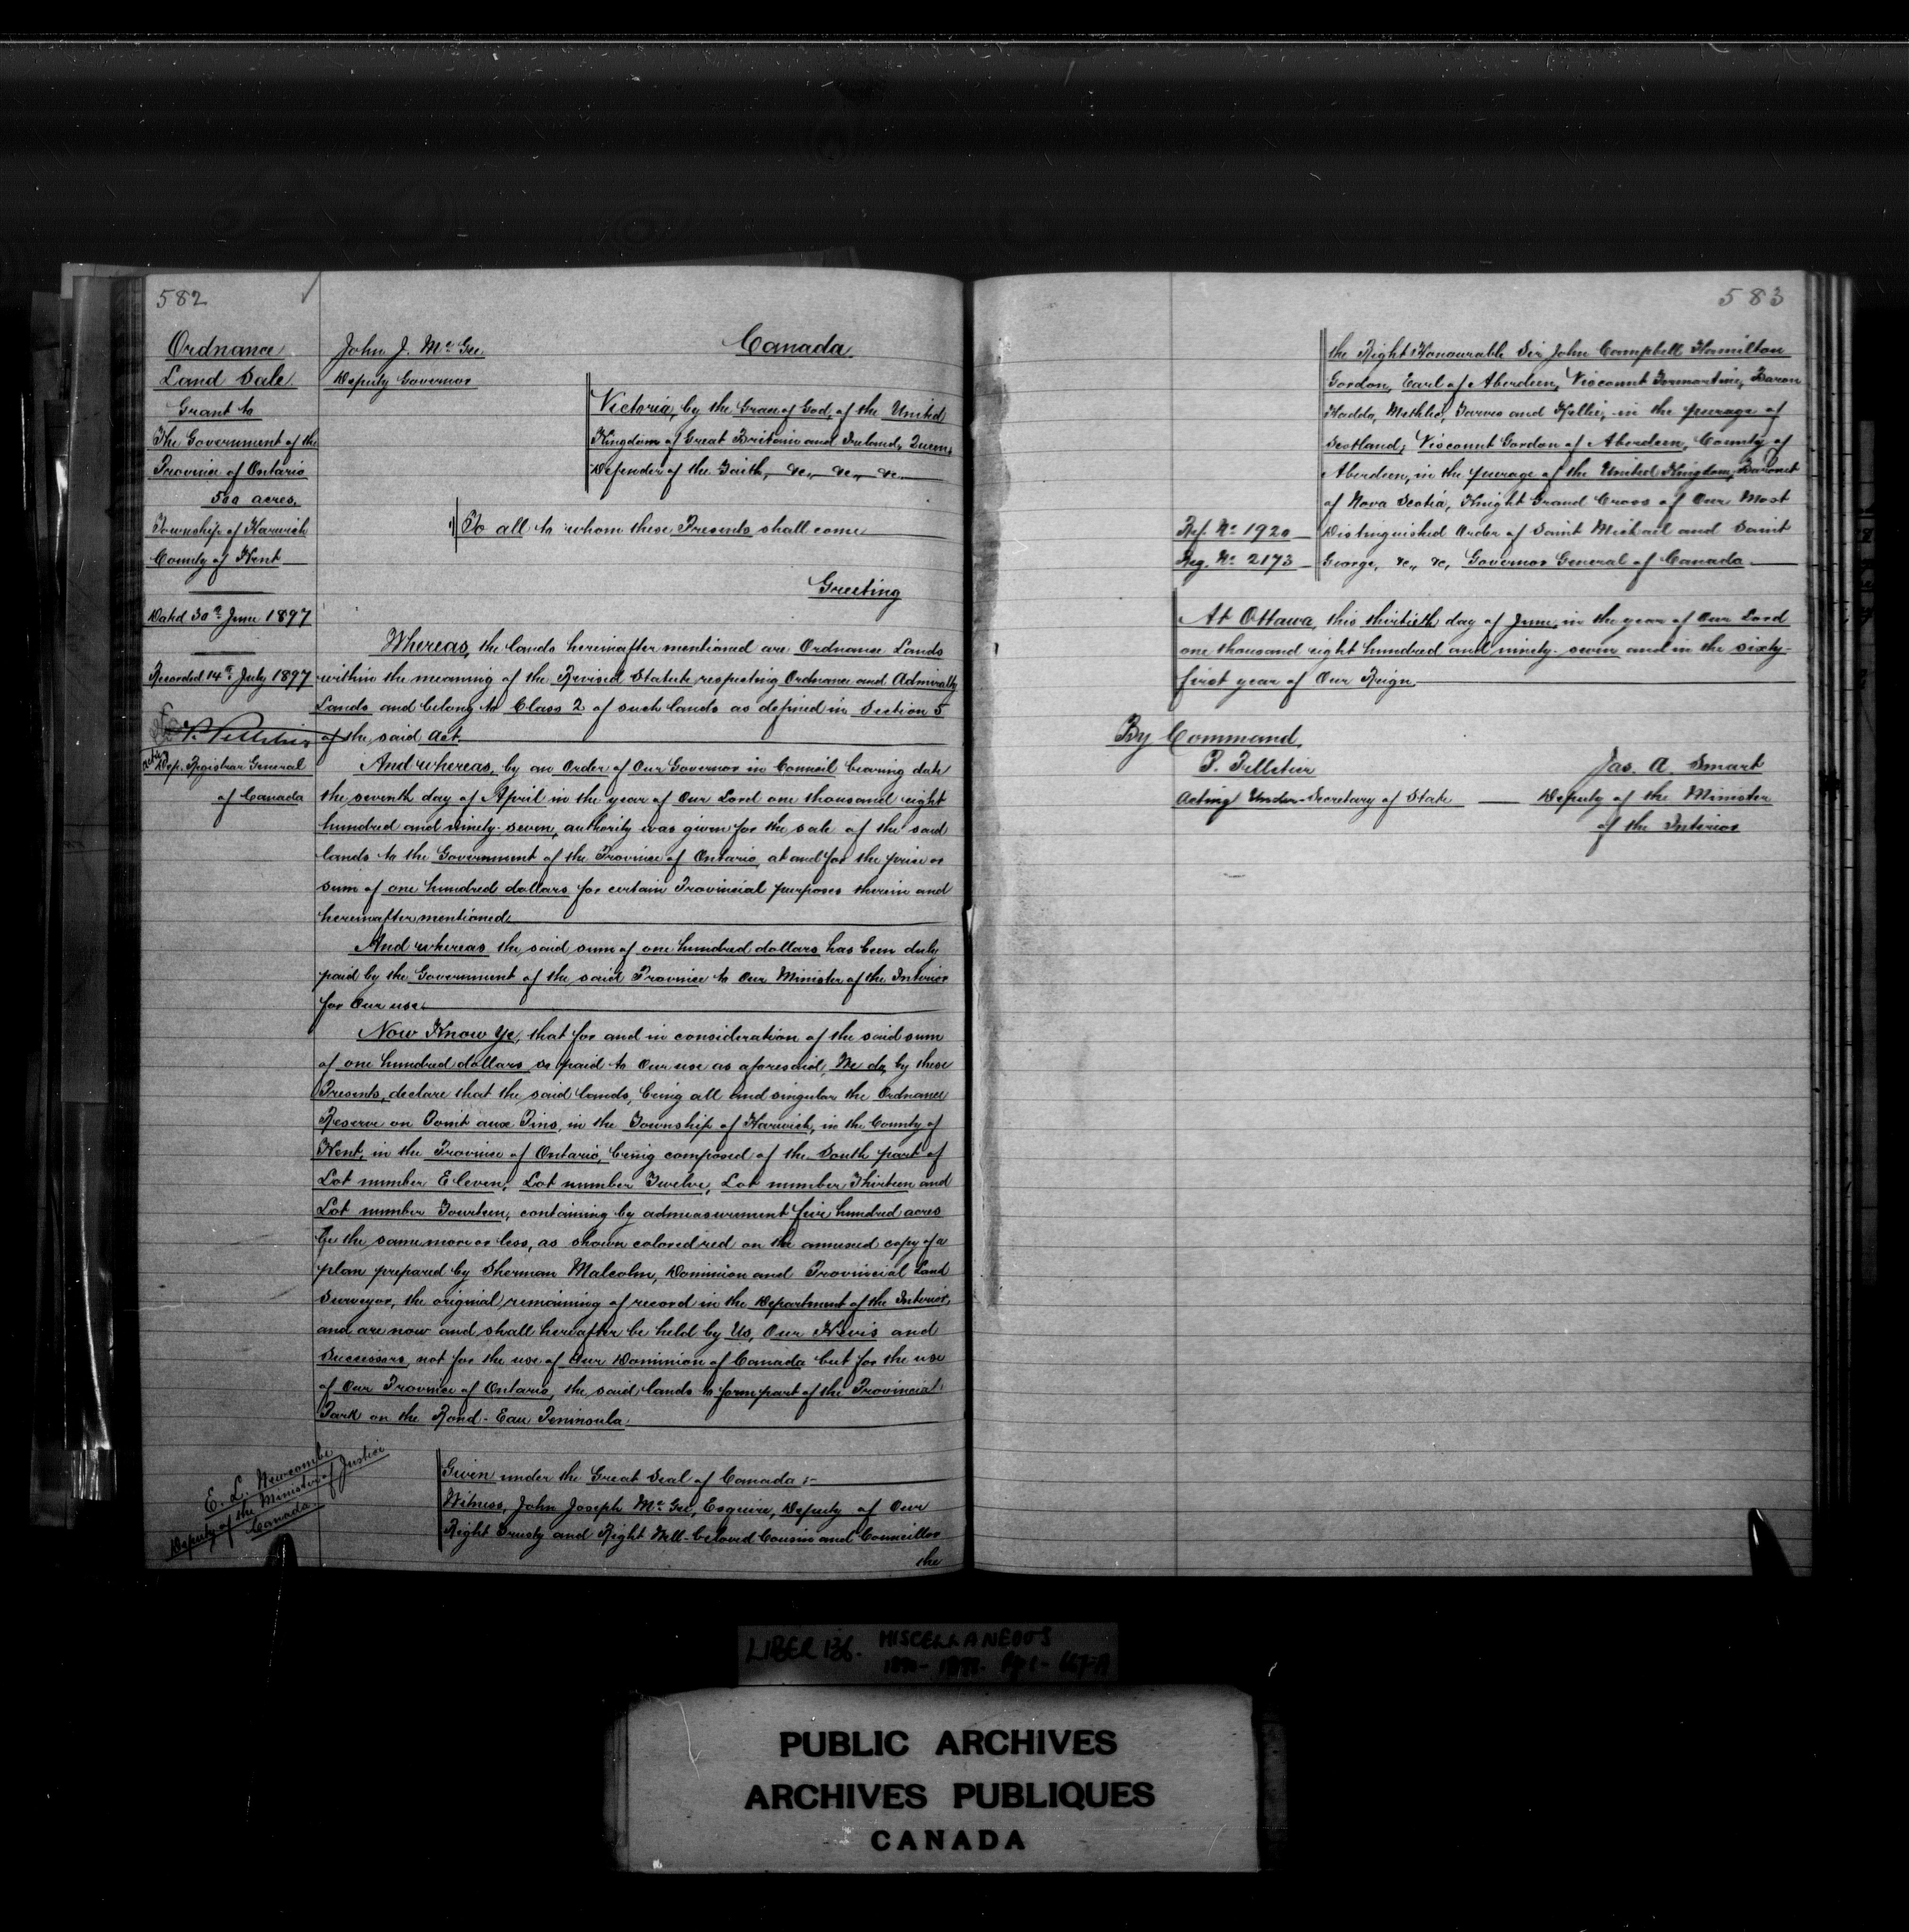 582
Ordnance
Land Sale
Grant to
The Government of the
Province of Ontario
500 acres.
Township of Harwich
County of Kent
Dated 30th June 1897
Recorded 14th July 1897
P. Pelletier
Dep. Registrar General
of Canada
John J. McGee
Deputy Governor
Canada
Victoria, by the Grace of God, of the United
Kingdom of Great Britain and Ireland, Queen,
Defender of the Faith, &c., &c., &c.
To all to whom these Presents shall come
Greeting
Whereas, the lands hereinafter mentioned are Ordnance Lands
within the meaning of the Revised Statute respecting Ordnance and Admiralty
Lands and belong to Class 2 of such lands as defined in Section 5
of the said Act.
And whereas, by an Order of Our Governor in Council bearing date
the seventh day of April in the year of Our Lord one thousand eight
hundred and ninety-seven, authority was given for the sale of the said
lands to the Government of the Province of Ontario, at and for the price or
sum of one hundred dollars for certain Provincial purposes therein and
hereinafter mentioned.
And whereas the said sum of one hundred dollars has been duly
paid by the Government of the said Province to Our Minister of the Interior
for Our use.
Now Know Ye, that for and in consideration of the said sum
of one hundred dollars so paid to Our use as aforesaid, We do, by these
Presents, declare that the said lands, being all and singular the Ordnance
Reserve on Point aux Pins, in the Township of Harwich, in the County of
Kent, in the Province of Ontario, being composed of the South part of
Lot number Eleven, Lot number Twelve, Lot number Thirteen and
Lot number Fourteen, containing by admeasurement five hundred acres
be the same more or less, as shown colored red on the annexed copy of a
plan prepared by Sherman Malcolm, Dominion and Provincial Land
Surveyor, the original remaining of record in the Department of the Interior,
and are now and shall hereafter be held by Us, Our Heirs and
Successors, not for the use of Our Dominion of Canada but for the use
of Our Province of Ontario, the said lands to form part of the Provincial
Park on the Rond-Eau Peninsula.
E. L. Newcombe
Deputy of the Minister of Justice
Canada.
Given under the Great Seal of Canada:-
Witness, John Joseph McGee, Esquire, Deputy of Our
Right Trusty and Right Well-beloved Cousin and Councillor
the
583
the Right Honourable Sir John Campbell Hamilton
Gordon, Earl of Aberdeen, Viscount Formartine, Baron
Haddo, Methlic, Tarves and Kellie, in the peerage of
Scotland; Viscount Gordon of Aberdeen, County of
Aberdeen, in the peerage of the United Kingdom; Baronet
of Nova Scotia, Knight Grand Cross of Our Most
Ref. No 1920
Distinguished Order of Saint Michael and Saint
Reg. No 2173
George, &c., &c., Governor General of Canada.
At Ottawa, this thirtieth day of June, in the year of Our Lord
one thousand eight hundred and ninety-seven and in the sixty-
first year of Our Reign.
By Command,
P. Pelletier
Acting Under-Secretary of State
Jas. A Smart
Deputy of the Minister
of the Interior
LIBER 136. MISCELLANEOUS
PUBLIC ARCHIVES
ARCHIVES PUBLIQUES
CANADA